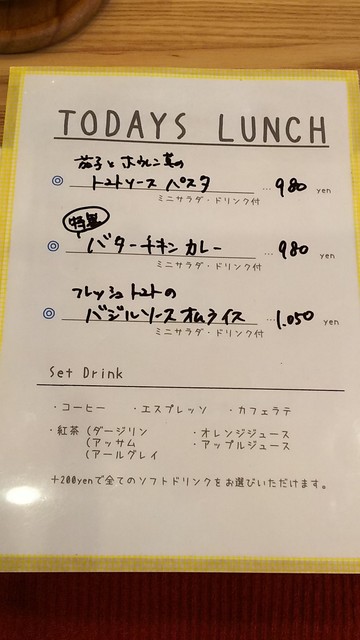 TODAYS LUNCH
茄子とホウレン草の
◎ トマトソース パスタ … 980 yen
ミニサラダ・ドリンク付
特製
◎ バターチキン カレー … 980 yen
ミニサラダ・ドリンク付
フレッシュトマトの
◎ バジルソース オムライス … 1.050 yen
ミニサラダ・ドリンク付
Set Drink
・コーヒー ・エスプレッソ ・カフェラテ
・紅茶 (ダージリン ・オレンジジュース
(アッサム ・アップルジュース
(アールグレイ
+200yenで全てのソフトドリンクをお選びいただけます。